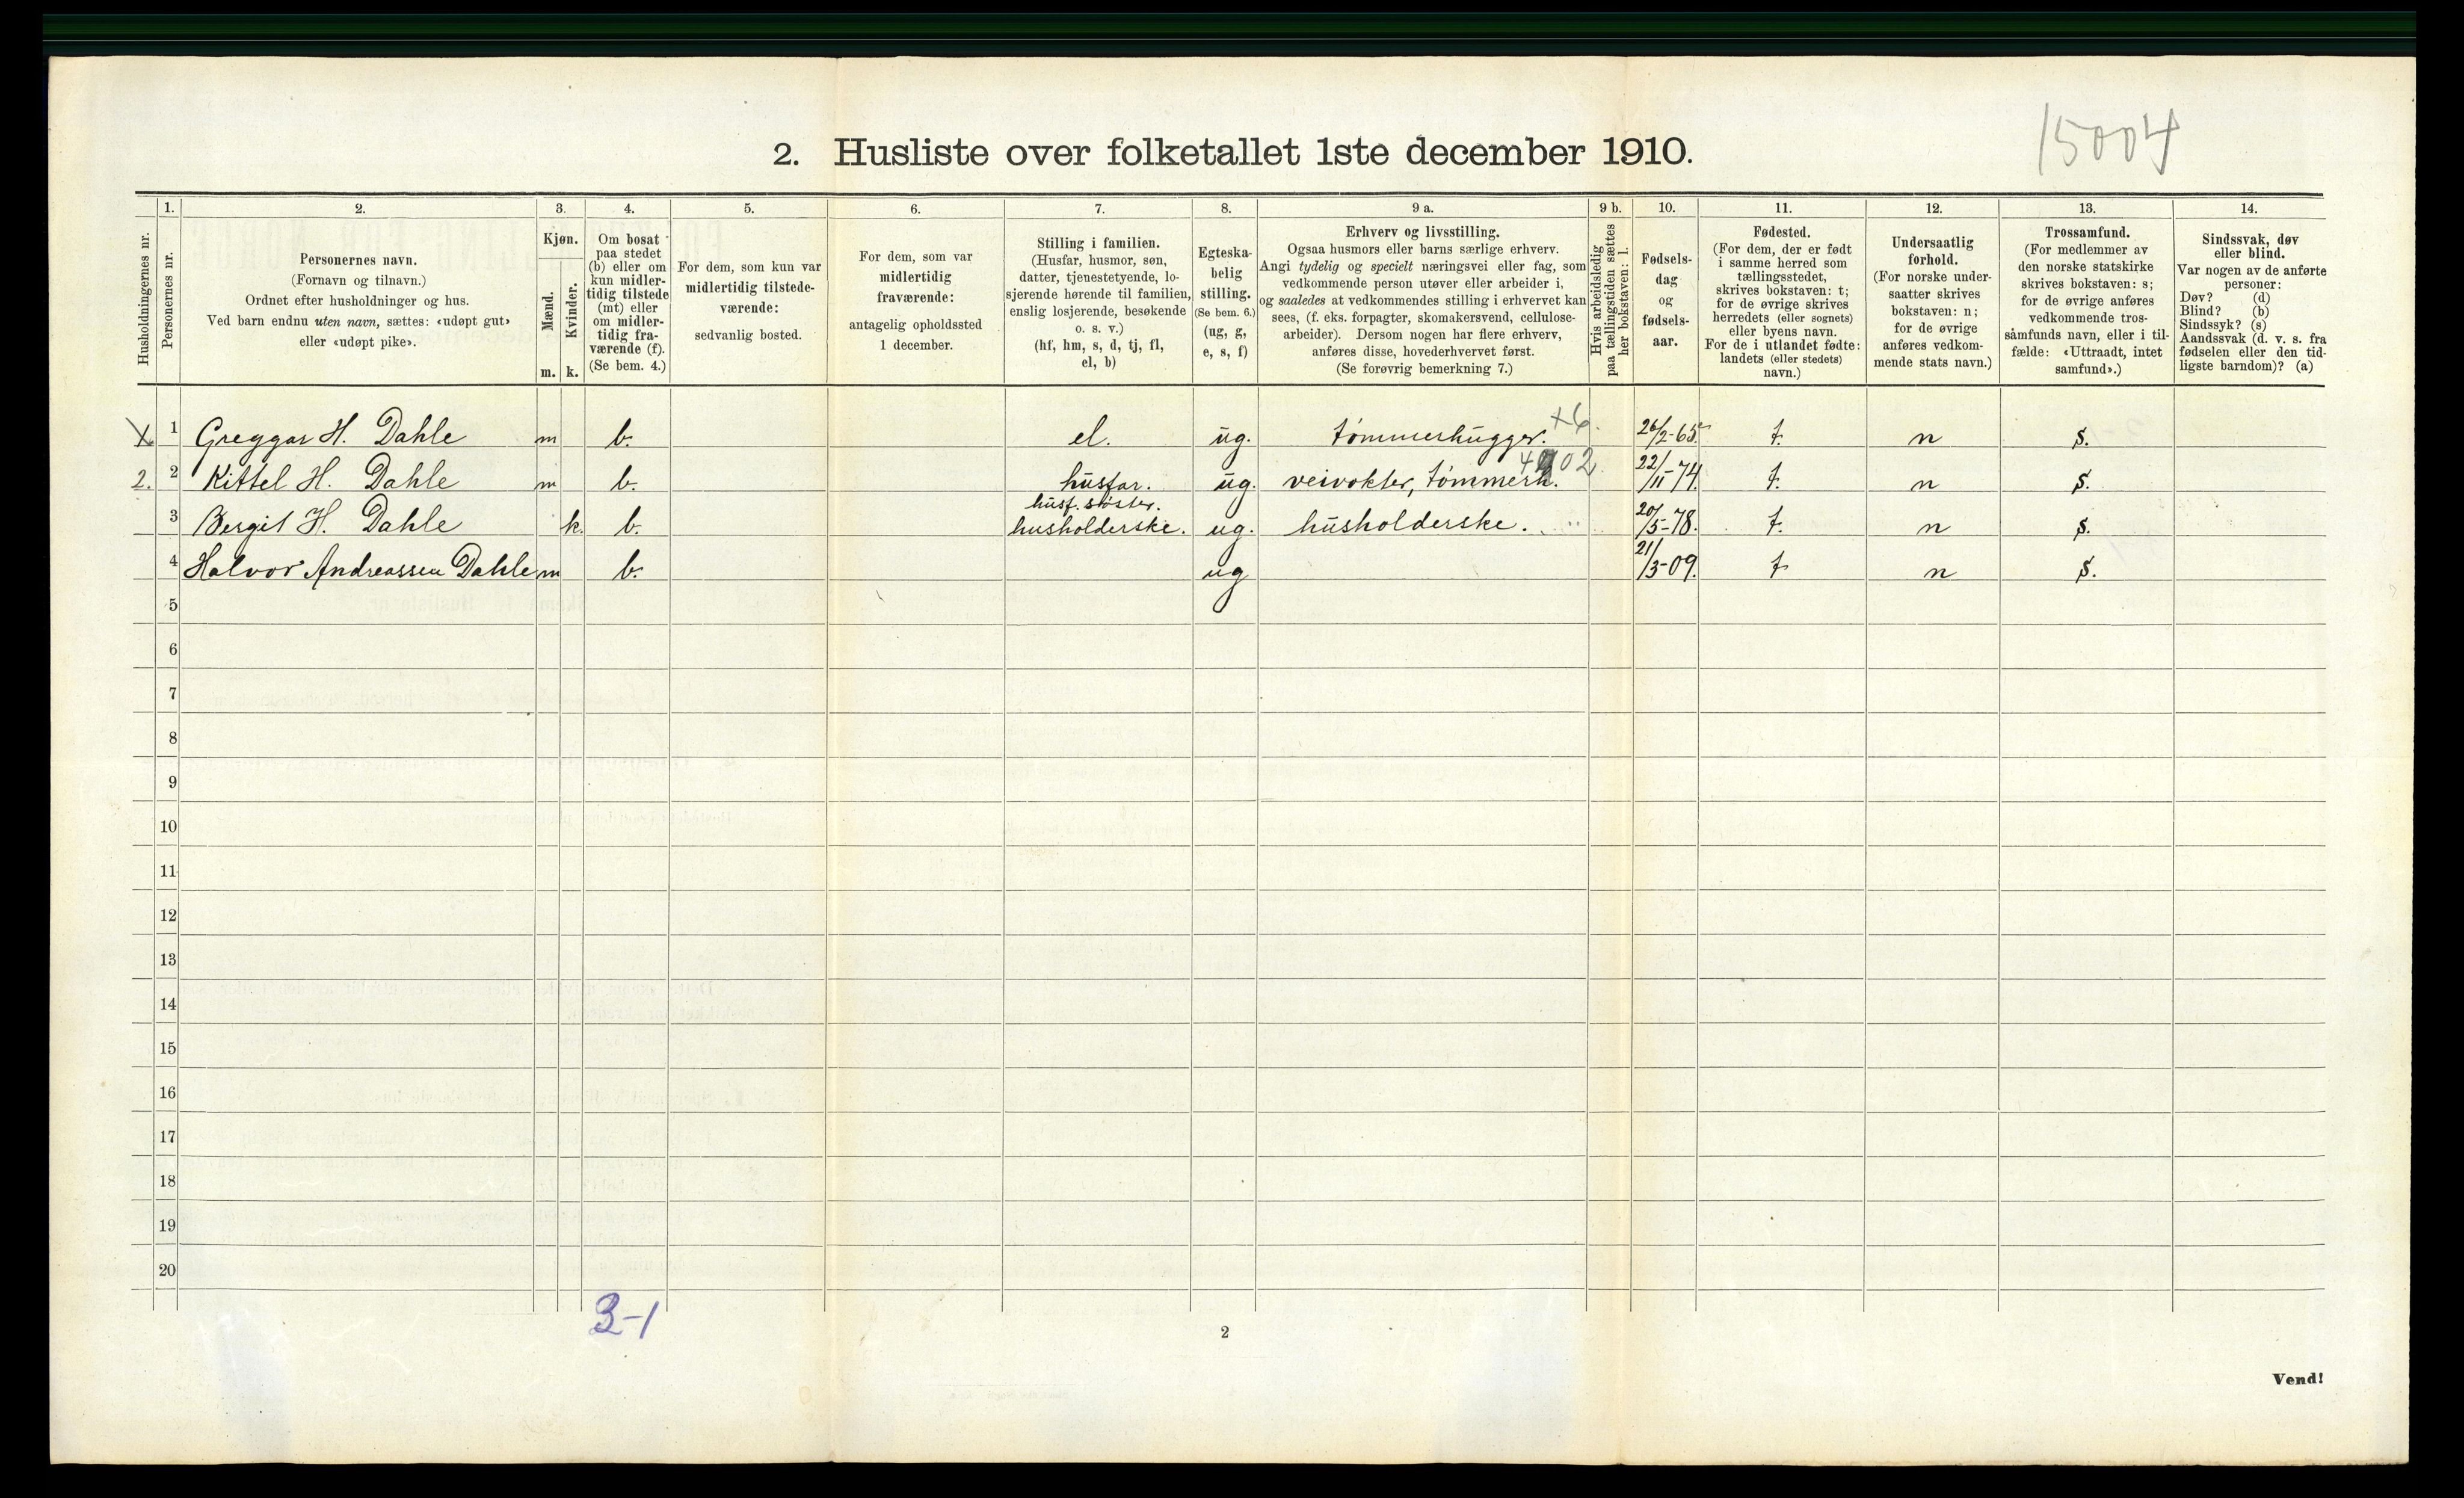 15004
2. Husliste over folketallet 1ste december 1910.
1. 2. 3. 4. 5. 6. 7. 8. 9 a. 9 b. 10. 11. 12. 13. 14.
Husholdningernes nr.
Personernes nr.
Personernes navn.
(Fornavn og tilnavn.)
Ordnet efter husholdninger og hus.
Ved barn endnu uten navn, sættes: «udøpt gut»
eller «udøpt pike».
Kjøn.
Mænd.
Kvinder.
m. k.
Om bosat
paa stedet
(b) eller om
kun midler-
tidig tilstede
(mt) eller
om midler-
tidig fra-
værende (f).
(Se bem. 4.)
For dem, som kun var
midlertidig tilstede-
værende:
sedvanlig bosted.
For dem, som var
midlertidig
fraværende:
antagelig opholdssted
1 december.
Stilling i familien.
(Husfar, husmor, søn,
datter, tjenestetyende, lo-
sjerende hørende til familien,
enslig losjerende, besøkende
o. s. v.)
(hf, hm, s, d, tj, fl,
el, b)
Egteska-
belig
stilling.
(Se bem. 6.)
(ug, g,
e, s, f)
Erhverv og livsstilling.
Ogsaa husmors eller barns særlige erhverv.
Angi tydelig og specielt næringsvei eller fag, som
vedkommende person utøver eller arbeider i,
og saaledes at vedkommendes stilling i erhvervet kan
sees, (f. eks. forpagter, skomakersvend, cellulose-
arbeider). Dersom nogen har flere erhverv,
anføres disse, hovederhvervet først.
(Se forøvrig bemerkning 7.)
Hvis arbeidsledig
paa tællingstiden sættes
her bokstaven: l.
Fødsels-
dag
og
fødsels-
aar.
Fødested.
(For dem, der er født
i samme herred som
tællingsstedet,
skrives bokstaven: t;
for de øvrige skrives
herredets (eller sognets)
eller byens navn.
For de i utlandet fødte:
landets (eller stedets)
navn.)
Undersaatlig
forhold.
(For norske under-
saatter skrives
bokstaven: n;
for de øvrige
anføres vedkom-
mende stats navn.)
Trossamfund.
(For medlemmer av
den norske statskirke
skrives bokstaven: s;
for de øvrige anføres
vedkommende tros-
samfunds navn, eller i til-
fælde: «Uttraadt, intet
samfund».)
Sindssvak, døv
eller blind.
Var nogen av de anførte
personer:
Døv? (d)
Blind? (b)
Sindssyk? (s)
Aandssvak (d. v. s. fra
fødselen eller den tid-
ligste barndom)? (a)
X 1 Greggar H. Dahle m b. el. ug. tømmerhugger. +6. 26/2-65 t. n s.
2. 2 Kittel H. Dahle m b. husfar. ug. veivokter, tømmerh. 22/11-74 t. n s.
3 Bergit H. Dahle k. b. husf. søster. husholderske. ug. husholderske. 20/5-78. t. n s.
4 Halvor Andreassen Dahle m b. ug 21/3-09. t n s.
5
6
7
8
9
10
11
12
13
14
15
16
17
18
19
20
3-1
2
Vend!